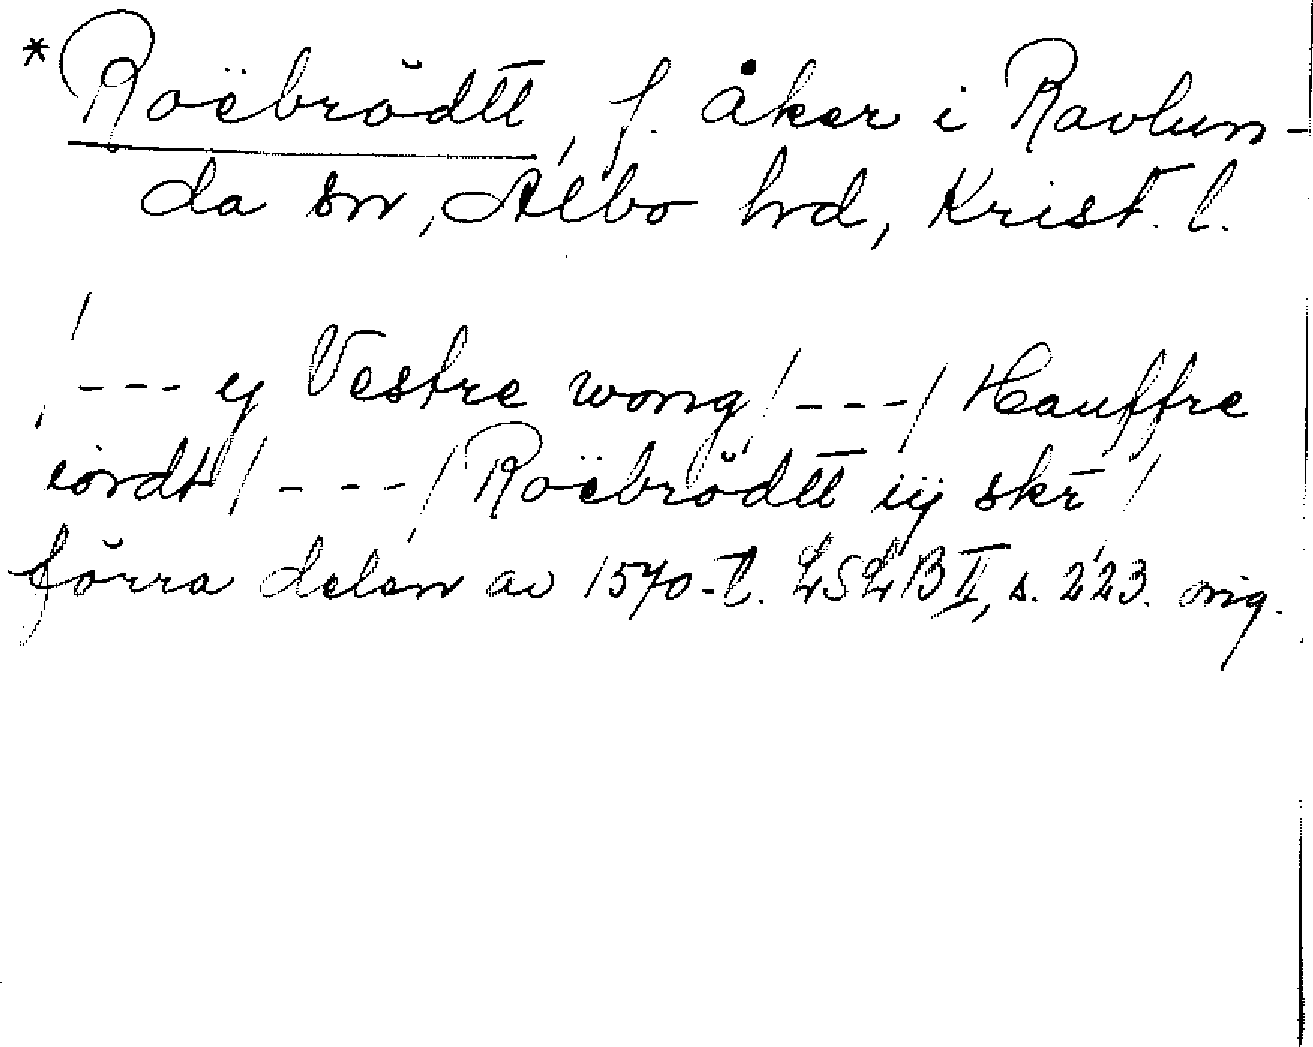 *Roëbrödtt, f. åker i Ravlun-
da sn, Albo hrd, Krist. l.
/--- y Vestre wong /---/ Hauffre
iördt /---/ Roëbrödtt iij skr̄ /
förra delen av 1570-t. LSLB II, s. 223. orig.